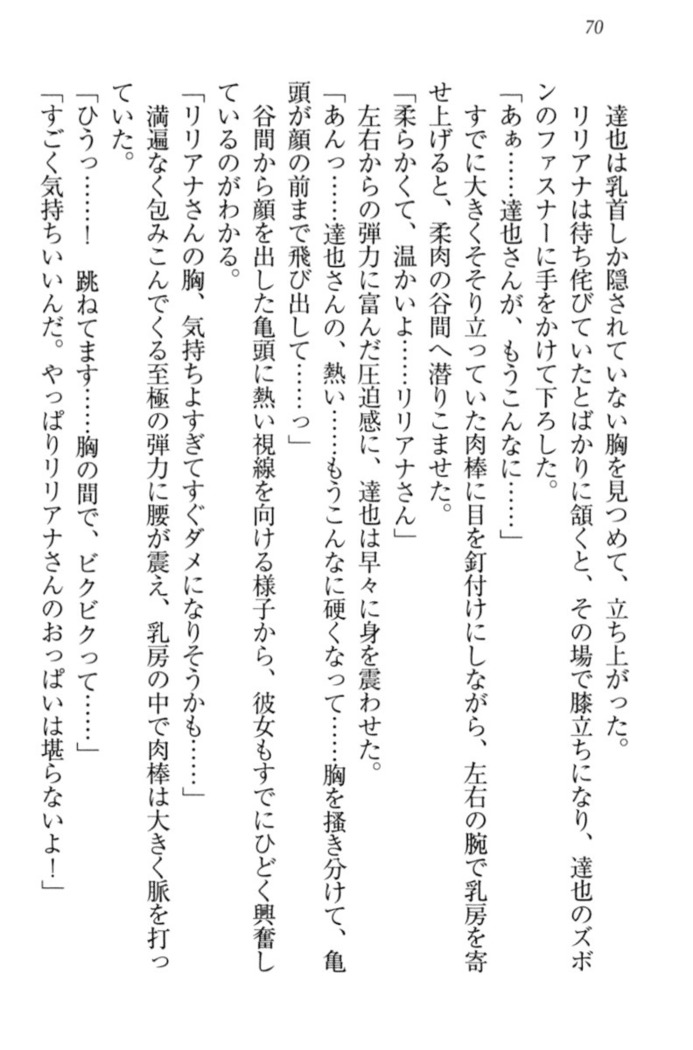 70
達也は乳首しか隠されていない胸を見つめて、立ち上がった。
リリアナは待ち侘びていたとばかりに頷くと、その場で膝立ちになり、達也のズボ
ンのファスナーに手をかけて下ろした。
「あぁ……達也さんが、もうこんなに……」
すでに大きくそそり立っていた肉棒に目を釘付けにしながら、左右の腕で乳房を寄
せ上げると、柔肉の谷間へ潜りこませた。
「柔らかくて、温かいよ……リリアナさん」
左右からの弾力に富んだ圧迫感に、達也は早々に身を震わせた。
「あんっ……達也さんの、熱い……もうこんなに硬くなって……胸を掻き分けて、亀
頭が顔の前まで飛び出して……っ」
谷間から顔を出した亀頭に熱い視線を向ける様子から、彼女もすでにひどく興奮し
ているのがわかる。
「リリアナさんの胸、気持ちよすぎてすぐダメになりそうかも……」
満遍なく包みこんでくる至極の弾力に腰が震え、乳房の中で肉棒は大きく脈を打っ
ていた。
「ひうっ……！　跳ねてます……胸の間で、ビクビクって……」
「すごく気持ちいいんだ。やっぱりリリアナさんのおっぱいは堪らないよ！」